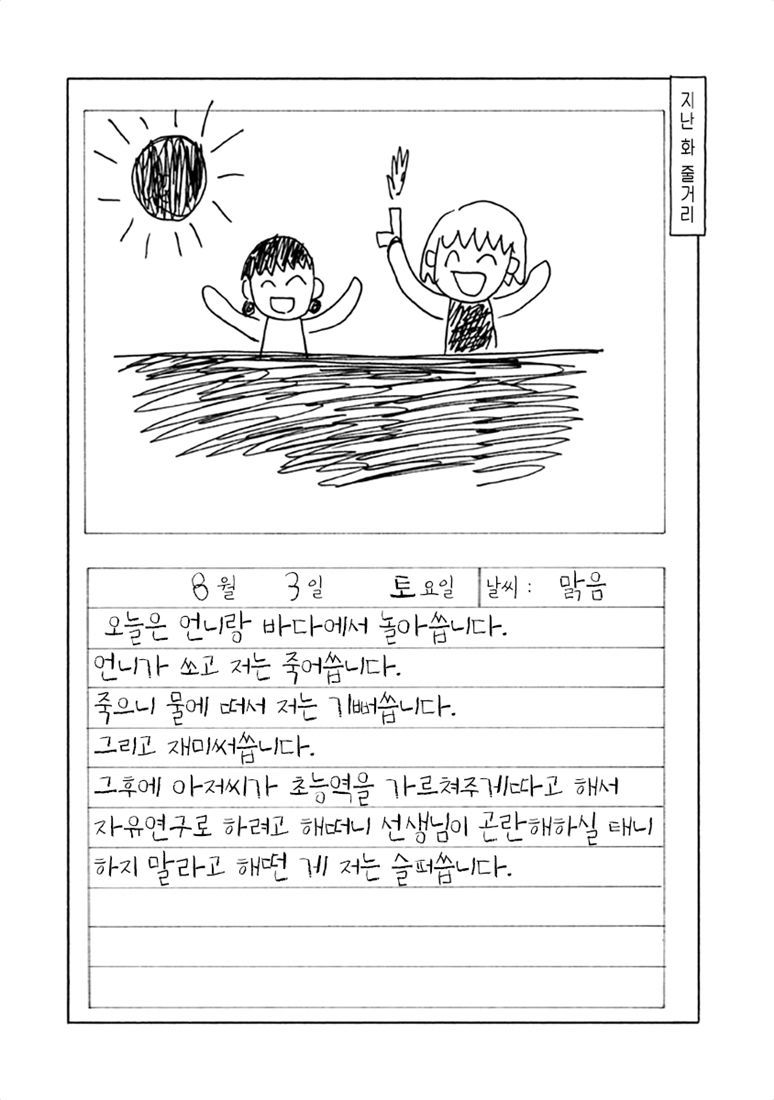 지난 화 줄거리
8월 3일 토요일 날씨 : 맑음
오늘은 언니랑 바다에서 놀아씁니다.
언니가 쏘고 저는 죽어씁니다.
죽으니 물에 떠서 저는 기뻐씁니다.
그리고 재미써씁니다.
그후에 아저씨가 초능역을 가르쳐주게따고 해서
자유연구로 하려고 해떠니 선생님이 곤란해하실 태니
하지 말라고 해떤 게 저는 슬퍼씁니다.